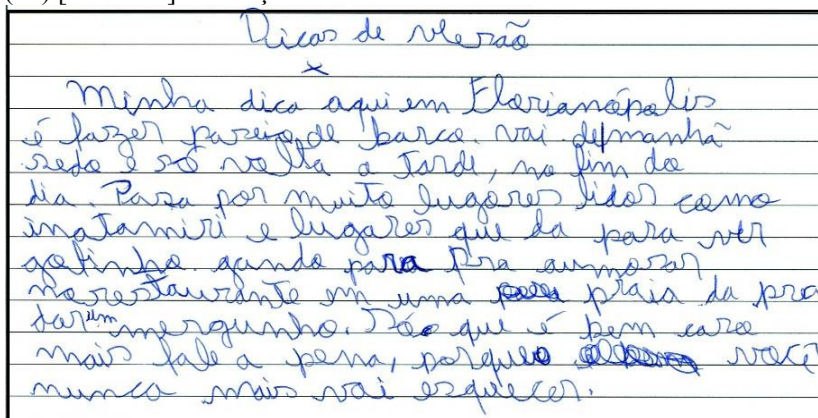 Dicas de verão
Minha dica aqui em Florianópolis
é fazer paseio de barco. vai de manhã
sedo e só volta a tarde, no fim do
dia. Pasa por muito lugares lidos como
inatamiri e lugares que da para ver
gofinho. gando para pra aumosar
no restaurante em uma praia da pra
dar um mergunho. São que é bem caro
mais fale a pena, porque você
nunca mais vai esquecer.